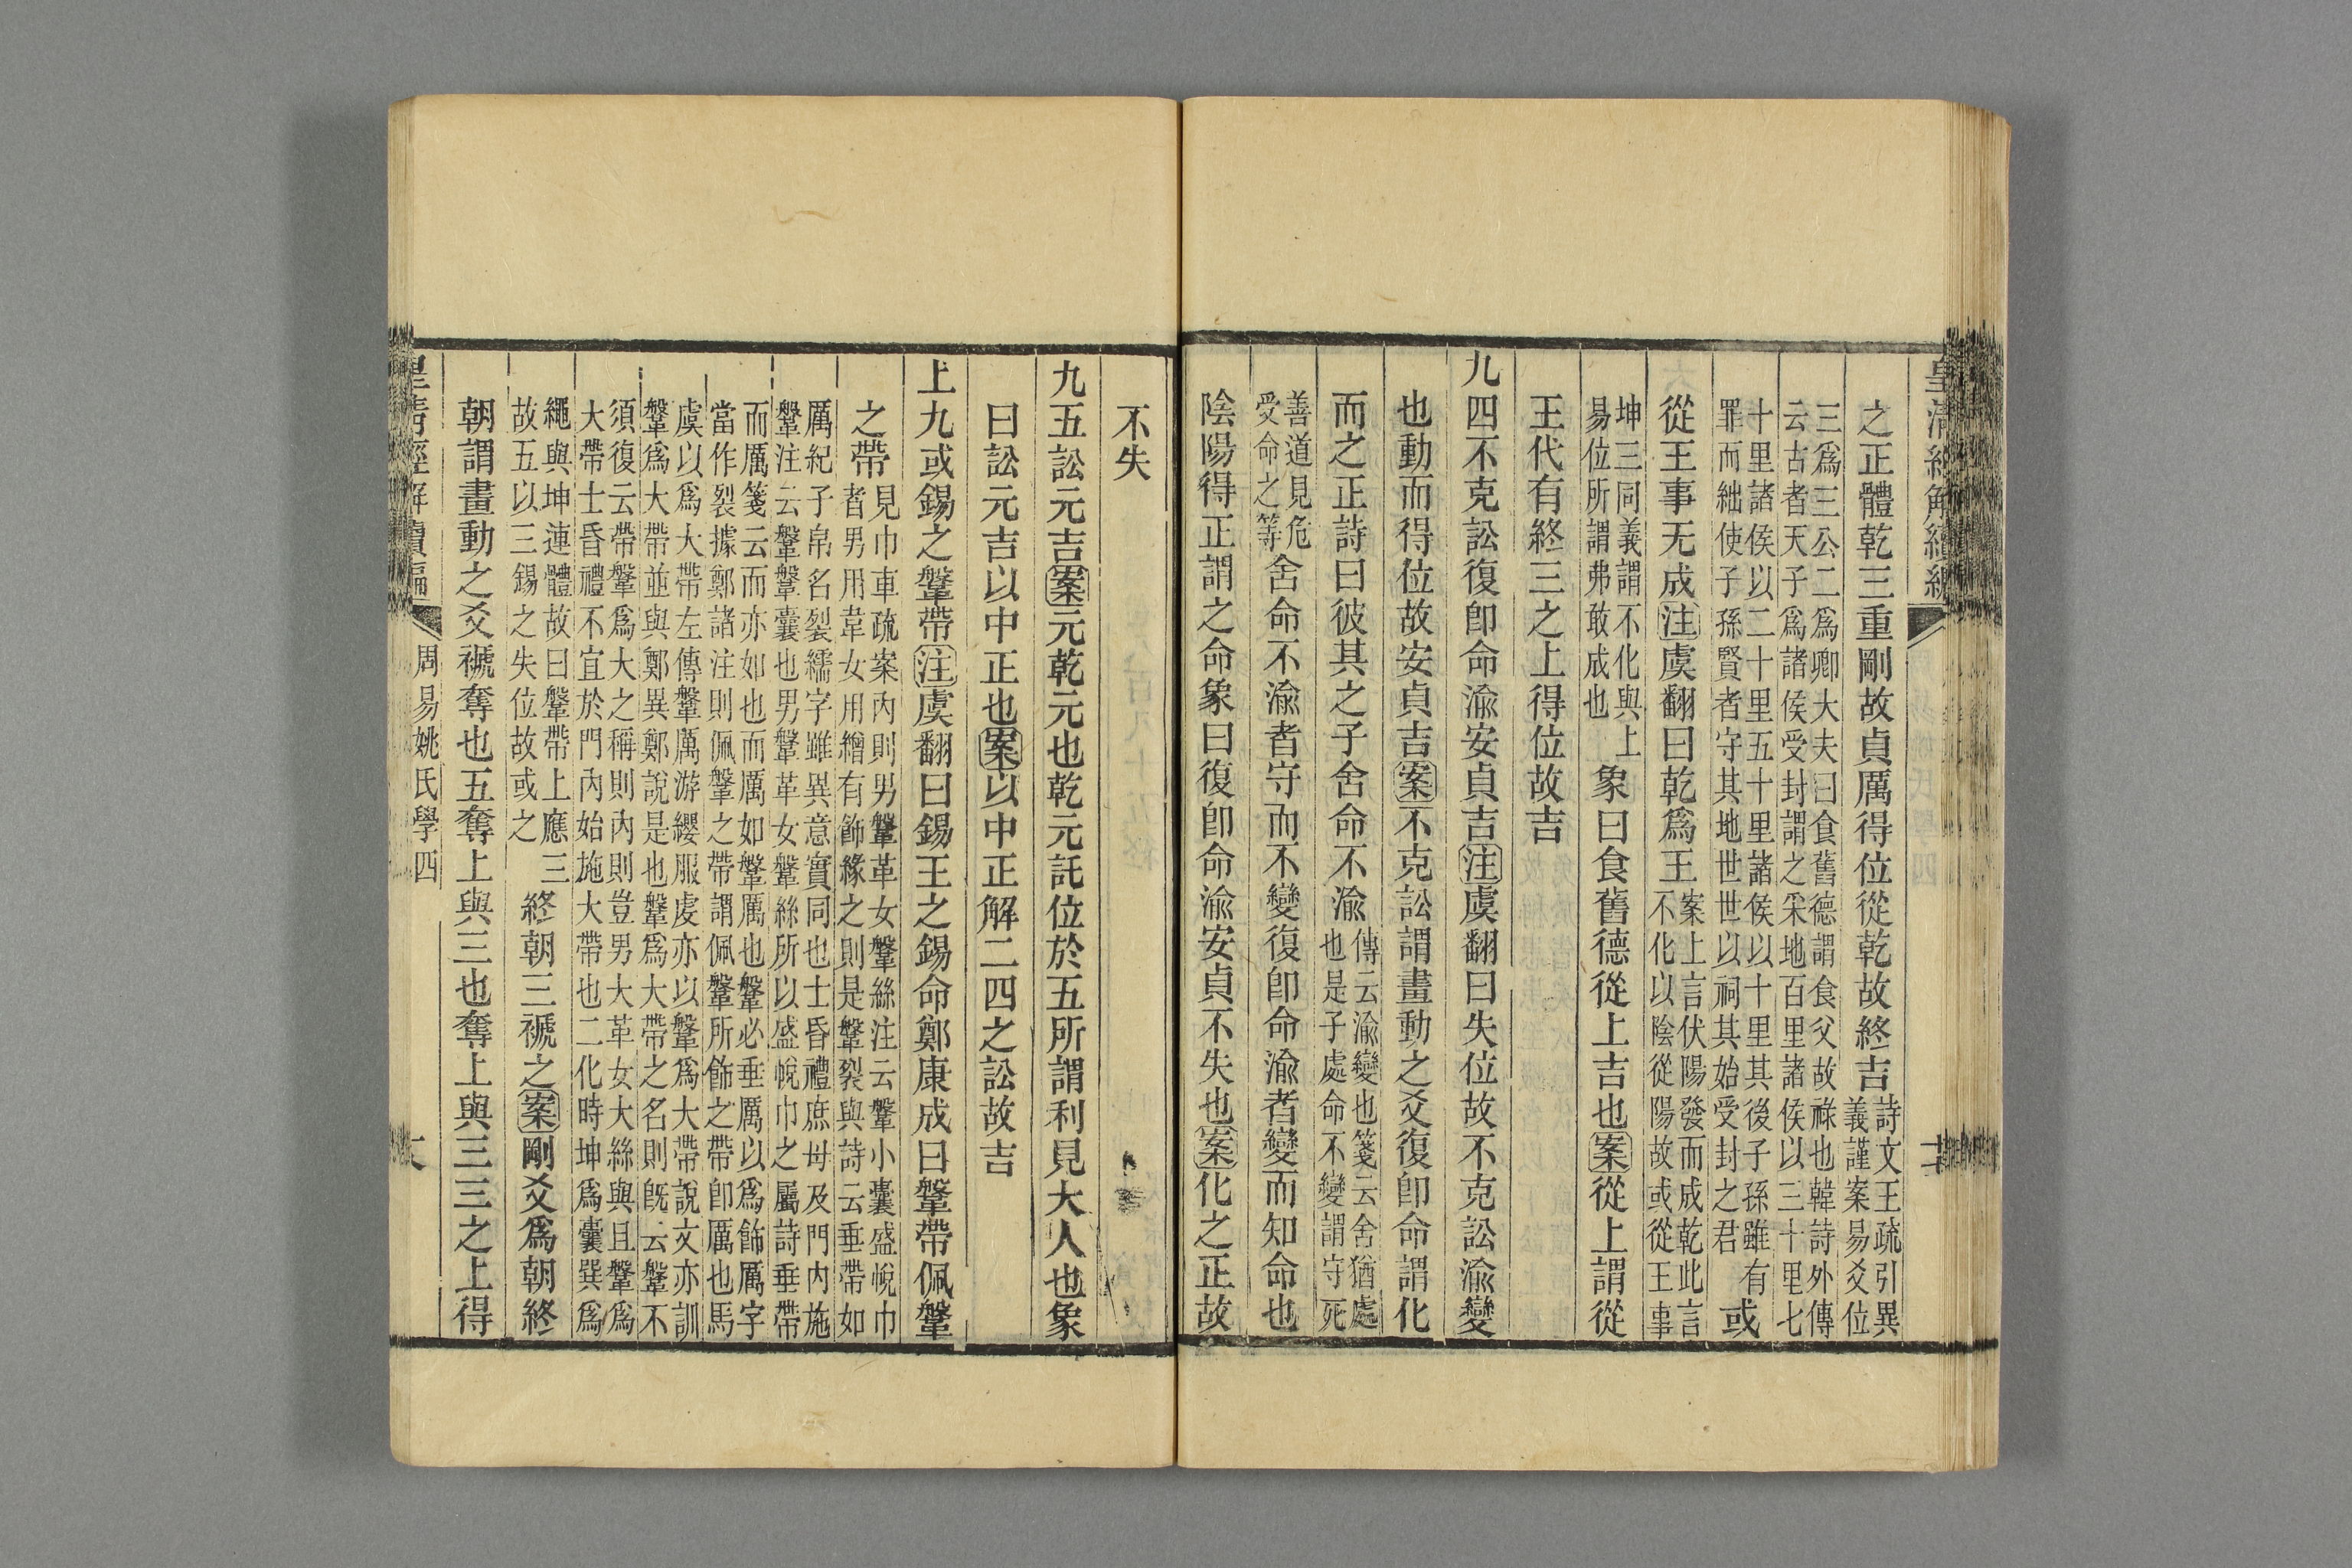 之正體乾三重剛故貞厲得位從乾故終吉詩文王疏引異義謹案易爻位
三爲三公二爲卿大夫曰食舊德謂食父故祿也韓詩外傳云古者天子爲諸侯受封謂之采地百里諸侯以三十里七
十里諸侯以二十里五十里諸侯以十里其後子孫雖有罪而絀使子孫賢者守其地世世以祠其始受封之君或
從王事无成注虞翻曰乾爲王案上言伏陽發而成乾此言不化以陰從陽故或從王事
坤三同義謂不化與上易位所謂弗敢成也象曰食舊德從上吉也案從上謂從
王代有終三之上得位故吉
九四不克訟復卽命渝安貞吉注虞翻曰失位故不克訟渝變
也動而得位故安貞吉案不克訟謂畫動之爻復卽命謂化
而之正詩曰彼其之子舍命不渝傳云渝變也箋云舍猶處也是子處命不變謂守死
善道見危受命之等舍命不渝者守而不變復卽命渝者變而知命也
陰陽得正謂之命象曰復卽命渝安貞不失也案化之正故
不失
九五訟元吉案元乾元也乾元託位於五所謂利見大人也象
曰訟元吉以中正也案以中正解二四之訟故吉
上九或錫之鞶帶注虞翻曰錫王之錫命鄭康成曰鞶帶佩鞶
之帶見巾車疏案內則男鞶革女鞶絲注云鞶小囊盛帨巾者男用韋女用繒有飾緣之則是鞶裂與詩云垂帶如
厲紀子帛名裂繻字雖異意實同也士昏禮庶母及門內施鞶注云鞶鞶囊也男鞶革女鞶絲所以盛帨巾之屬詩垂帶
而厲箋云而亦如也而厲如鞶厲也鞶必垂厲以爲飾厲字當作裂據鄭諸注則佩鞶之帶謂佩鞶所飾之帶卽厲也馬
虞以爲大帶左傳鞶厲游纓服虔亦以鞶爲大帶說文亦訓鞶爲大帶並與鄭異鄭說是也鞶爲大帶之名則旣云鞶不
須復云帶鞶爲大之稱則內則豈男大革女大絲與且鞶爲大帶士昏禮不宜於門內始施大帶也二化時坤爲囊巽爲
繩與坤連體故曰鞶帶上應三故五以三錫之失位故或之終朝三褫之案剛爻爲朝終
朝謂畫動之爻褫奪也五奪上與三也奪上與三三之上得
周易姚氏學四